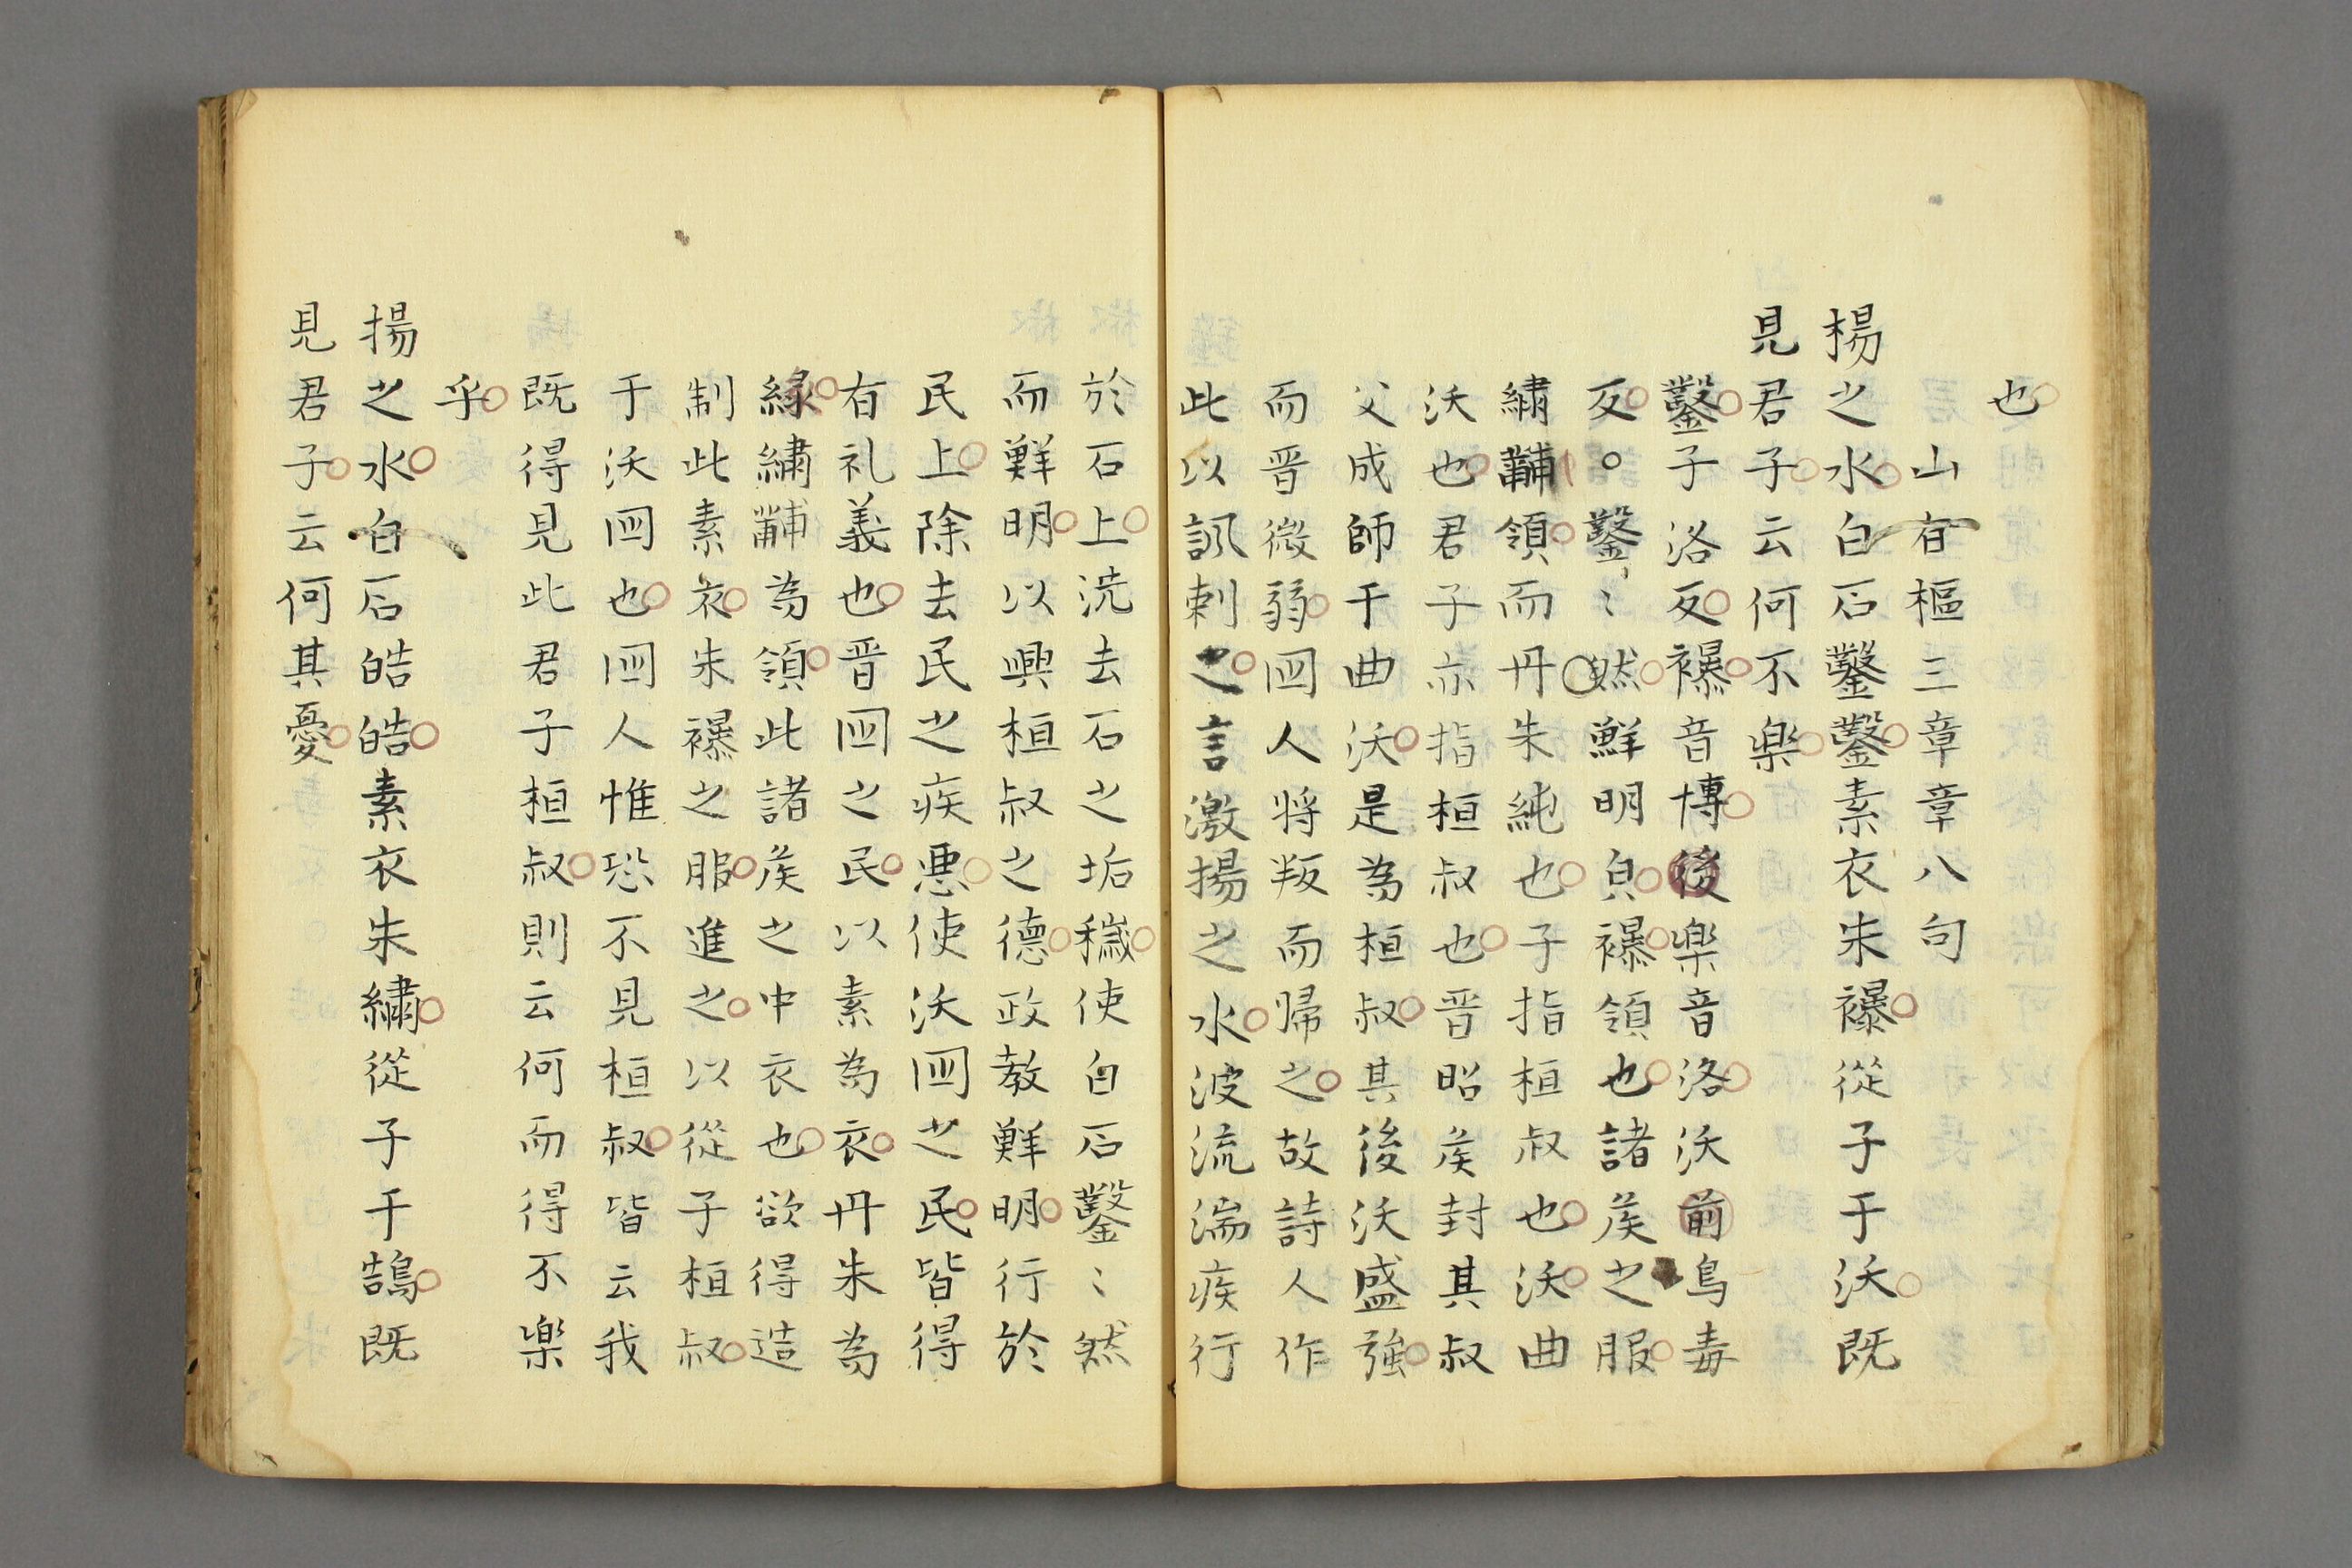 也
山有樞三章章八句
揚之水白石鑿鑿素衣朱襮從子于沃既
見君子云何不樂
鑿子洛反襮音博後樂音洛沃前烏毒
反○鑿〻然鮮明皃襮領也諸侯之服
繡黼領而丹朱純也子指桓叔也沃曲
沃也君子亦指桓叔也晋昭侯封其叔
父成師于曲沃是為桓叔其後沃盛強
而晋微弱囯人将叛而帰之故詩人作
此以訊刺之言激揚之水波流湍疾行
於石上洗去石之垢穢使白石鑿〻然
而鮮明以興桓叔之德政教鮮明行於
民上除去民之疾悪使沃囯之民皆得
有礼義也晋囯之民以素為衣丹朱為
縁繡黼為領此諸侯之中衣也欲得造
制此素衣朱襮之服進之以從子桓叔
于沃囯也囯人惟恐不見桓叔皆云我
既得見此君子桓叔則云何而得不樂
乎
揚之水白石皓皓素衣朱繡從子于鵠既
見君子云何其憂